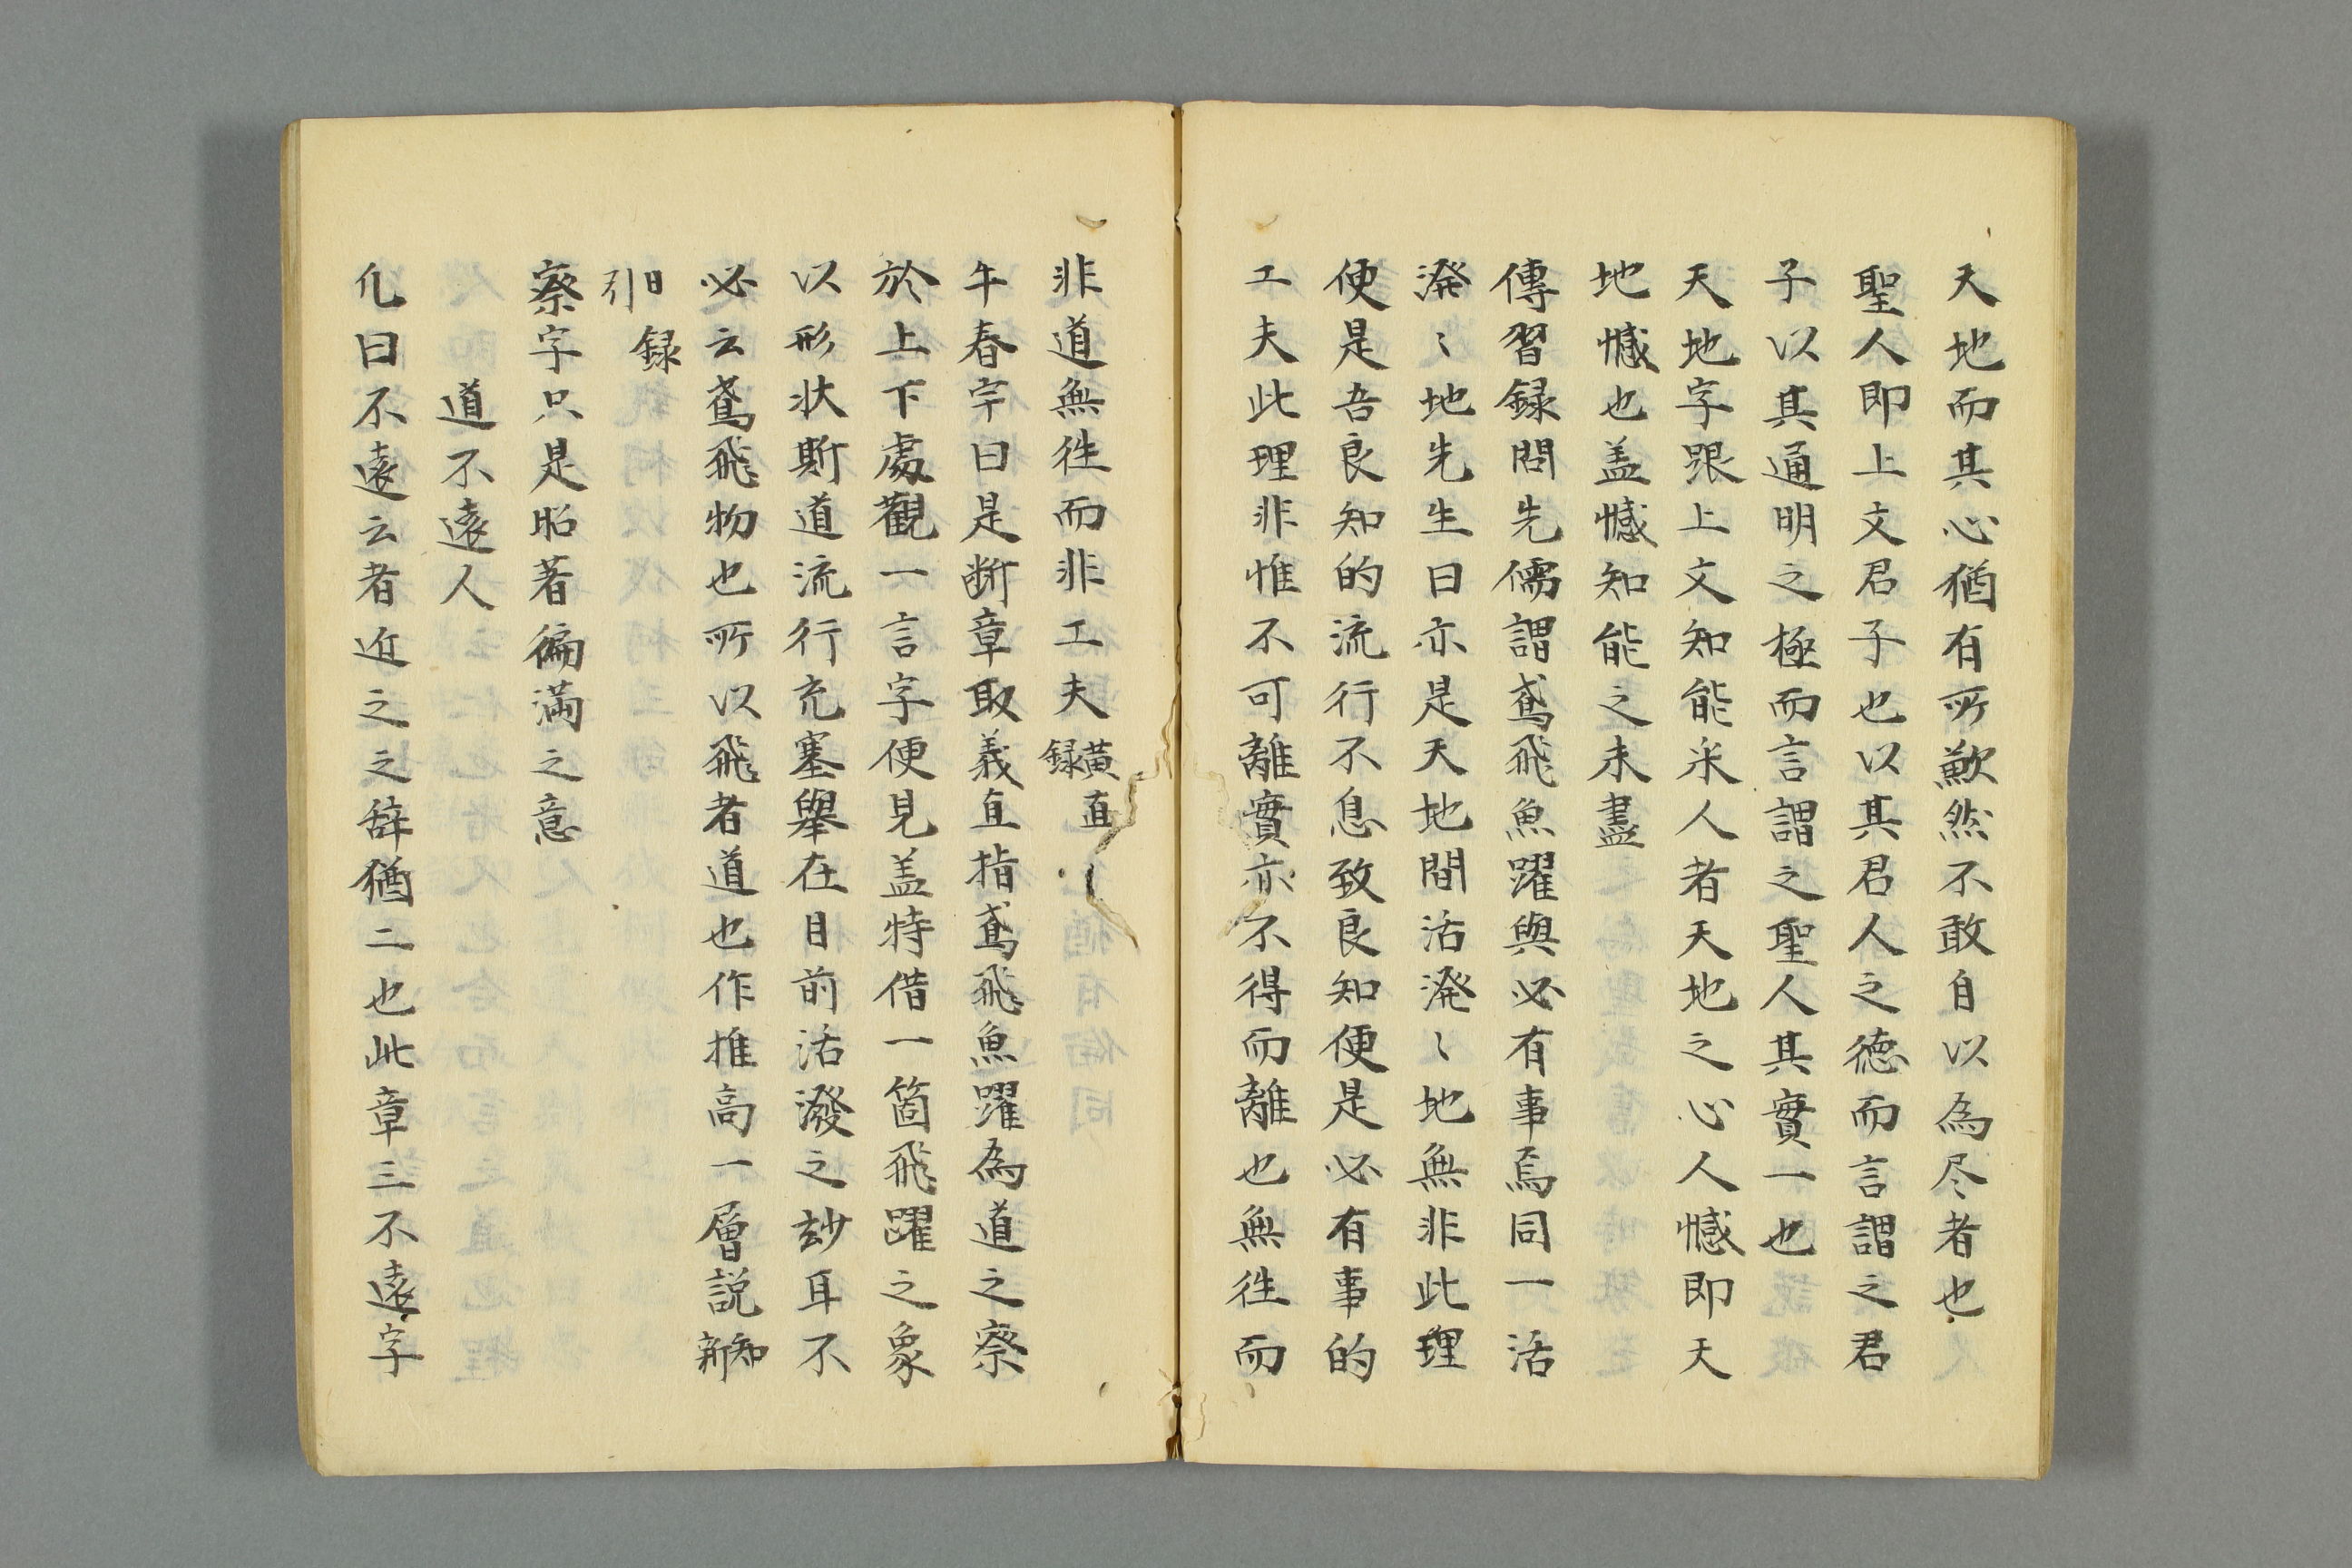 天地而其心猶有所歉然不敢自以為尽者也
聖人即上文君子也以其君人之德而言謂之君
子以其通明之極而言謂之聖人其實一也
天地字跟上文知能来人者天地之心人憾即天
地憾也盖憾知能之未盡
傳習録問先儒謂鳶飛魚躍與必有事焉同一活
潑〻地先生曰亦是天地間活潑〻地無非此理
便是吾良知的流行不息致良知便是必有事的
工夫此理非惟不可離實亦不得而離也無徃而
非道無徃而非工夫 黄直録
牛春宇曰是断章取義直指鳶飛魚躍為道之察
於上下處觀一言字便見盖特借一箇飛躍之象
以形状斯道流行充塞舉在目前活潑之玅耳不
必云鳶飛物也所以飛者道也作推高一層説 知新
日録引
察字只是昭著徧满之意
道不遠人
凢曰不遠云者近之之辞猶二也此章三不遠字